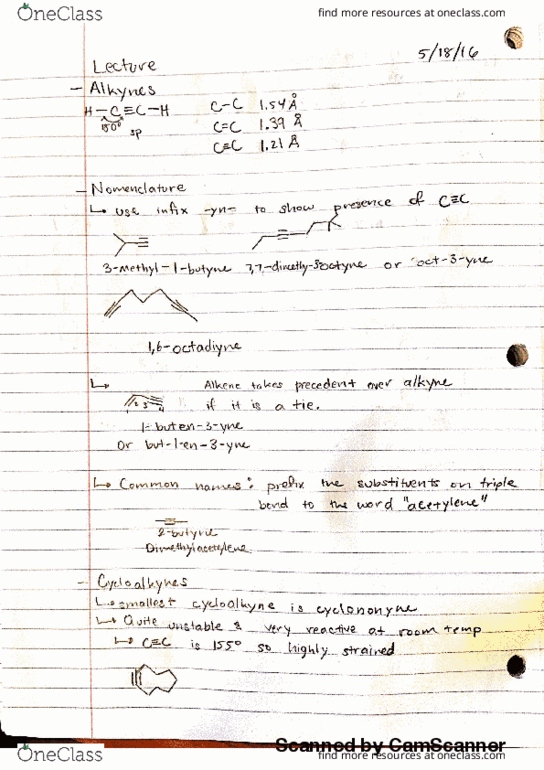 OneClass
find more resources at oneclass.com
5/18/16
Lecture
- Alkynes
H-C≡C-H C-C 1.54 Å
180° sp C=C 1.39 Å
C≡C 1.21 Å
- Nomenclature
↳ use infix -yn- to show presence of C≡C
3-methyl-1-butyne 7,7-dimethyl-3-octyne or oct-3-yne
1,6-octadiyne
↳ Alkene takes precedent over alkyne
1 2 3 4 if it is a tie.
1-buten-3-yne
or but-1-en-3-yne
↳ Common names: prefix the substituents on triple
bond to the word "acetylene"
2-butyne
Dimethylacetylene
- Cycloalkynes
↳ smallest cycloalkyne is cyclononyne
↳ Quite unstable & very reactive at room temp
↳ C≡C is 155° so highly strained
Scanned by CamScanner
OneClass
find more resources at oneclass.com